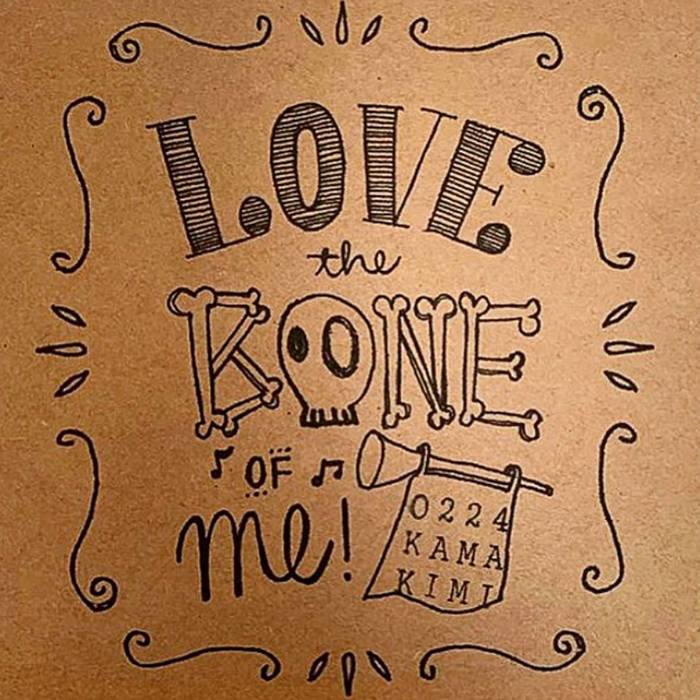 LOVE
the
BONE
OF
me!
0224
KAMA
KIMI